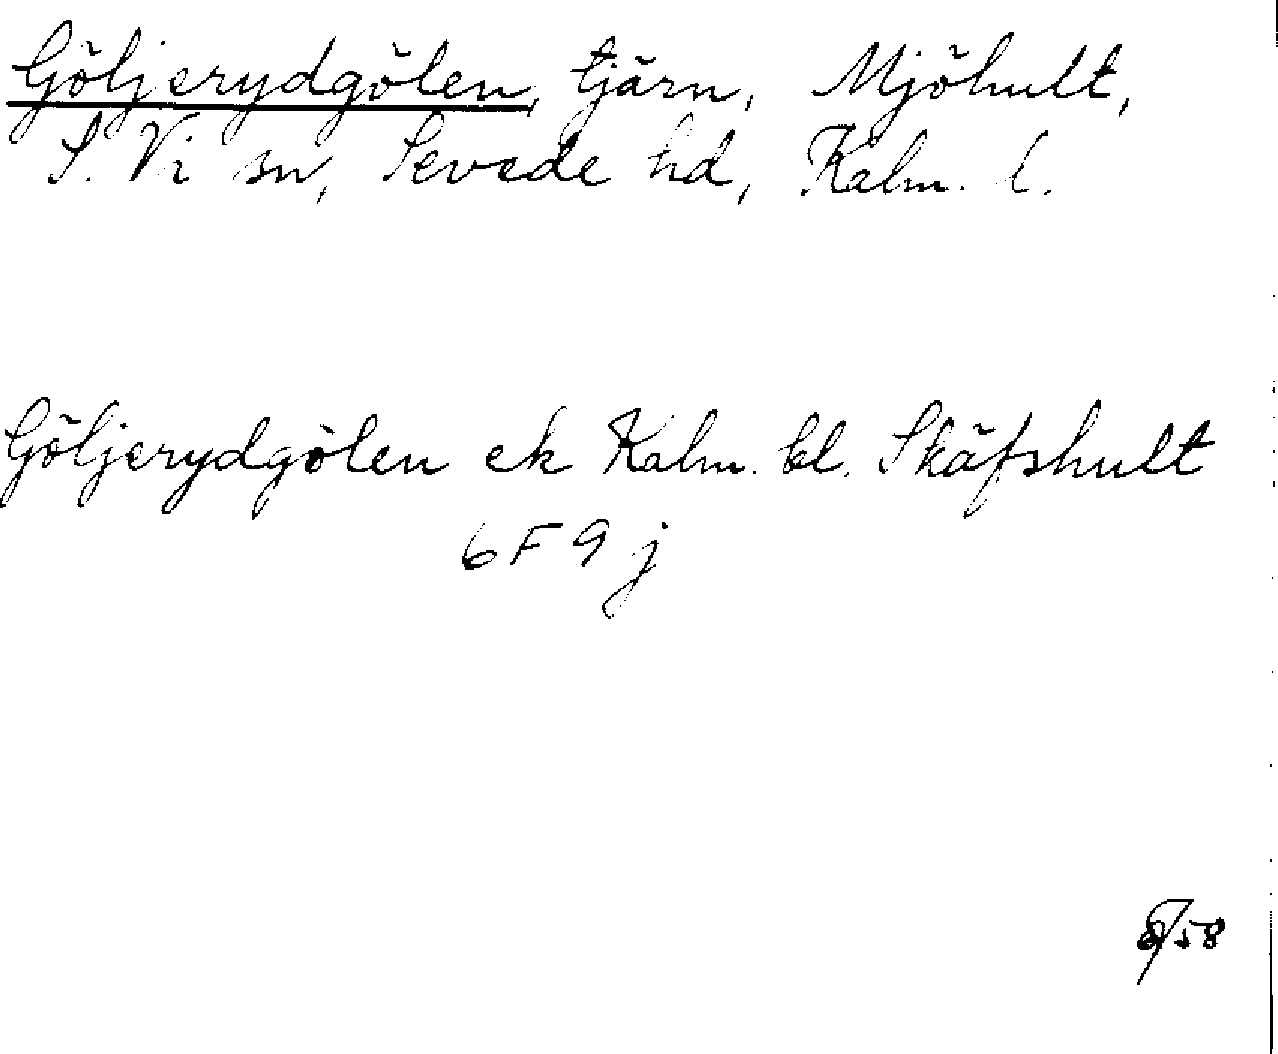 Göljerydgölen, tjärn, Mjöhult,
S. Vi sn, Sevede hd, Kalm. l.
Göljerydgölen ek Kalm. bl. Skäfshult
6F 9 j